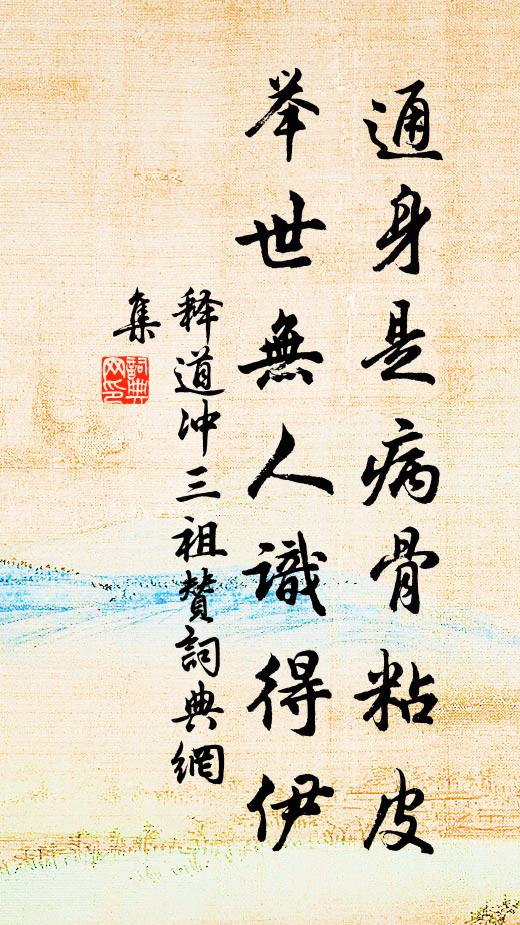 通身是病骨粘皮
举世無人識得伊
释道冲三祖赞詞典網
集
詞典
网印